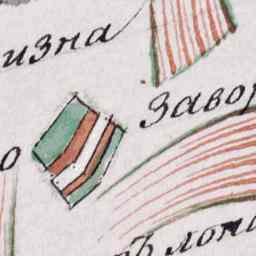 изна
Завор
о
ъ лон